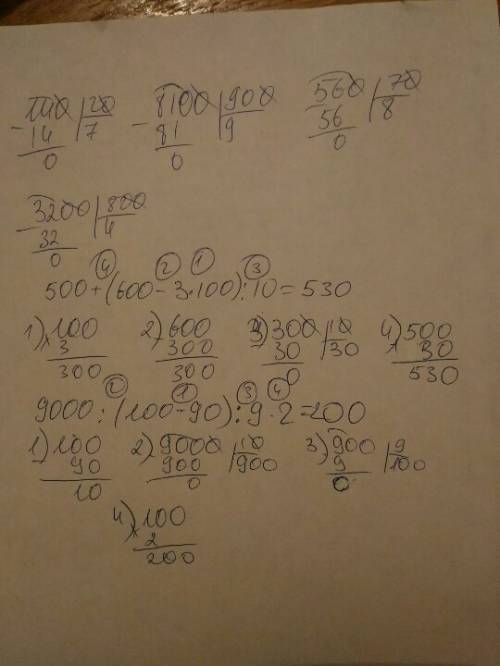 140 | 20 8100 | 900 560 | 70
- 14 | 7 - 81 | 9 - 56 | 8
0 0 0
3200 | 800
- 32 | 4
0
4 2 1 3
500 + (600 - 3 · 100) : 10 = 530
1) 100 2) 600 3) 300 | 10 4) 500
× 3 - 300 - 30 | 30 + 30
300 300 0 530
2 1 3 4
9000 : (100 - 90) : 9 · 2 = 200
1) 100 2) 9000 | 10 3) 900 | 9
- 90 - 900 | 900 - 9 | 100
10 0 0
4) 100
× 2
200